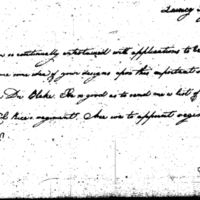 Quincy
is continually entertained with applications to be
me some idea of your designs upon this important s
Dr. Blake. Be so good as to send me a list of
Rice's argument. Are we to appoint